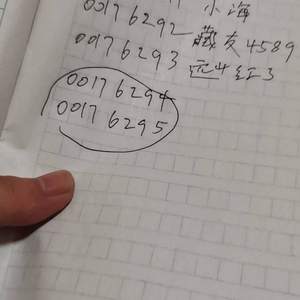 小海
00176292 藏友4589
00176293 远4红3
00176294
00176295